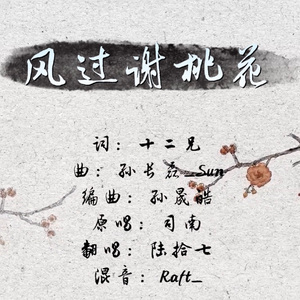 风过谢桃花
词：十二兄
曲：孙长磊_Sun
编曲：孙晟皓
原唱：司南
翻唱：陆拾七
混音：Raft_